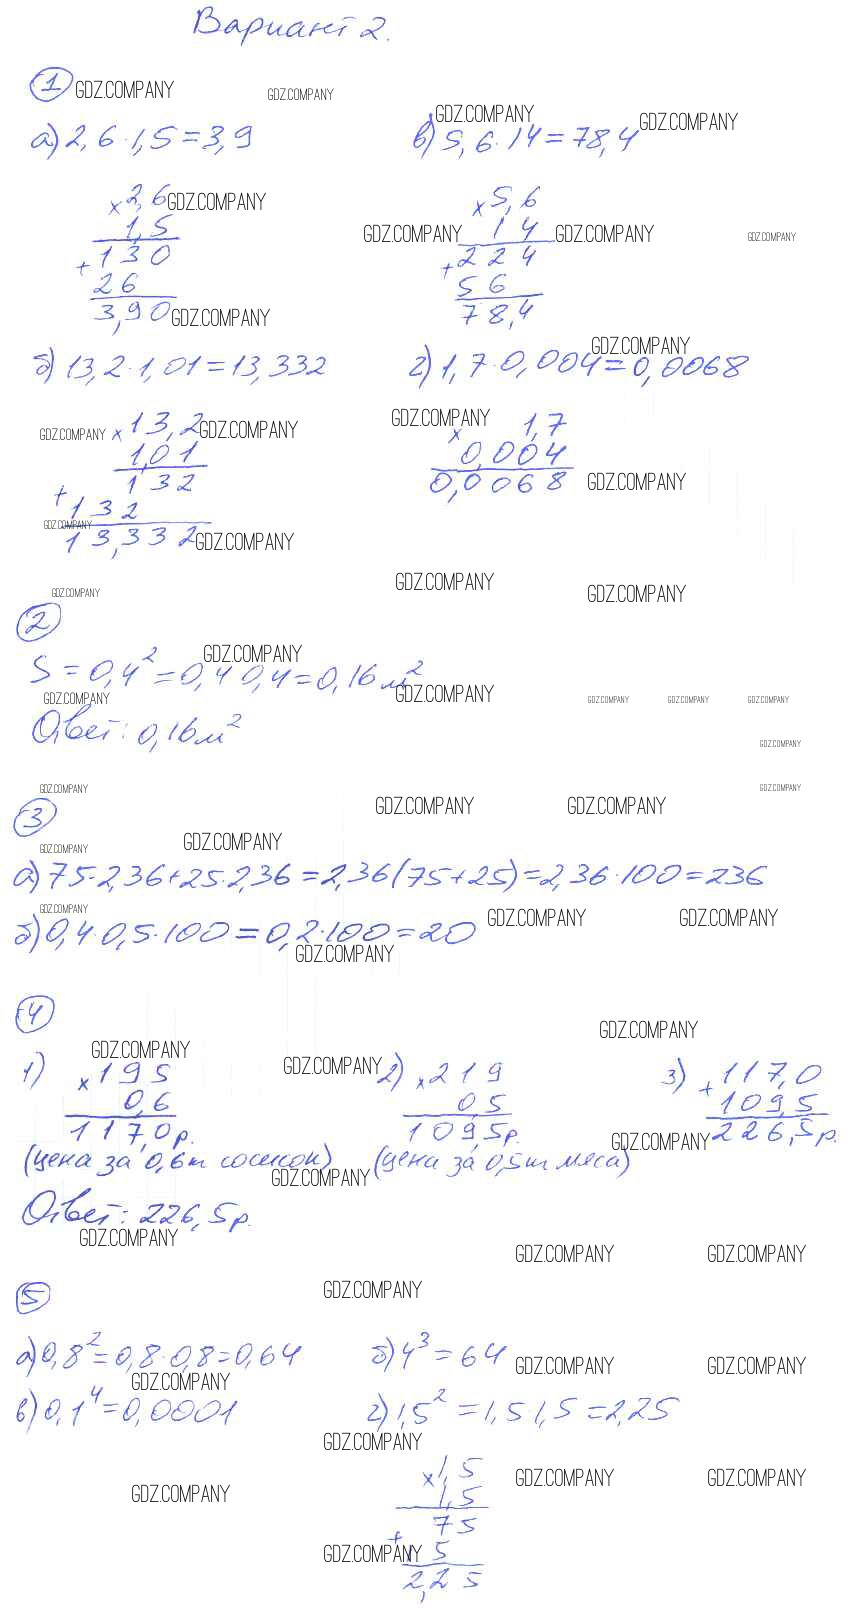 Вариант 2.
1 GDZ.COMPANY GDZ.COMPANY
GDZ.COMPANY GDZ.COMPANY
а) 2,6·1,5=3,9 в) 5,6·14=78,4
× 2,6 GDZ.COMPANY × 5,6
1,5 GDZ.COMPANY 14 GDZ.COMPANY GDZ.COMPANY
+ 130 + 224
26 56
3,90 GDZ.COMPANY 78,4
GDZ.COMPANY
б) 13,2·1,01=13,332 г) 1,7·0,004=0,0068
GDZ.COMPANY × 13,2 GDZ.COMPANY GDZ.COMPANY × 1,7
1,01 0,004
132 0,0068 GDZ.COMPANY
+ 132
GDZ.COMPANY
13,332 GDZ.COMPANY
GDZ.COMPANY GDZ.COMPANY GDZ.COMPANY
2
GDZ.COMPANY
S=0,4²=0,4 0,4=0,16 м²
GDZ.COMPANY GDZ.COMPANY GDZ.COMPANY GDZ.COMPANY GDZ.COMPANY
Ответ: 0,16 м²
GDZ.COMPANY
GDZ.COMPANY GDZ.COMPANY
3 GDZ.COMPANY GDZ.COMPANY
GDZ.COMPANY GDZ.COMPANY
а) 75·2,36+25·2,36=2,36(75+25)=2,36·100=236
GDZ.COMPANY GDZ.COMPANY GDZ.COMPANY
б) 0,4·0,5·100=0,2·100=20
GDZ.COMPANY
4
GDZ.COMPANY
GDZ.COMPANY GDZ.COMPANY
1) × 195 2) × 219 3) + 117,0
0,6 0,5 109,5
117,0 р. 109,5 р. 226,5 р.
GDZ.COMPANY
(цена за 0,6 кг сосисок) (цена за 0,5 кг мяса)
GDZ.COMPANY
Ответ: 226,5 р.
GDZ.COMPANY GDZ.COMPANY GDZ.COMPANY
5 GDZ.COMPANY
а) 0,8²=0,8·0,8=0,64 б) 4³=64
GDZ.COMPANY GDZ.COMPANY GDZ.COMPANY
в) 0,1⁴=0,0001 г) 1,5²=1,5 1,5=2,25
GDZ.COMPANY
× 1,5
GDZ.COMPANY 1,5 GDZ.COMPANY GDZ.COMPANY
75
GDZ.COMPANY + 5
2,25